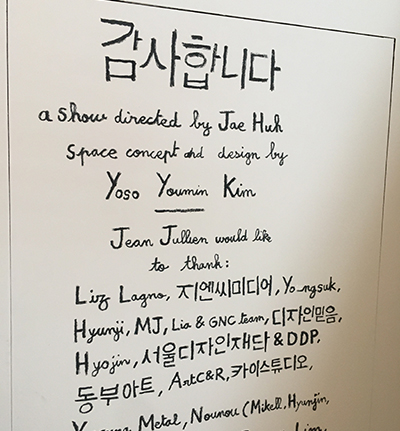 감사합니다
a show directed by Jae Huh
space concept and design by
Yoso Youmin Kim
Jean Jullien would like
to thank:
Liz Lagno, 지엔씨미디어, Yongsuk,
Hyunji, MJ, Lia & GNC team, 디자인믿음,
Hyojin, 서울디자인재단 & DDP,
동부아트, Art C&R, 카이스튜디오,
Metal, Nounou (Mikell, Hyunjin,